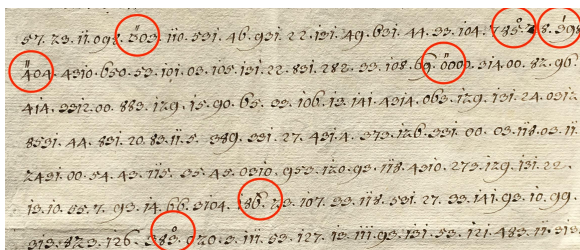 57. 23. 11. 092. 303. 110. 531. 46. 931. 22. 131. 49. 631. 44. 33. 104. 785. 48. 398
404. 4310. 650. 53. 101. 03. 105. 131. 22. 831. 282. 33. 108. 69. 000. 314. 00. 82. 96
414. 3312. 00. 883. 129. 15. 90. 65. 33. 106. 13. 141. 4314. 063. 129. 131. 24. 0312
8531. 44. 831. 20. 83. 115. 389. 331. 27. 431. 4. 373. 126. 331. 00. 03. 118. 03. 11
2431. 00. 54. 43. 115. 35. 45. 0310. 953. 120. 93. 118. 4310. 273. 129. 131. 22
13. 10. 55. 7. 93. 14. 66. 3104. 186. 23. 107. 33. 118. 531. 27. 33. 141. 93. 10. 99.
313. 823. 126. 383. 020. 3. 111. 53. 127. 13. 111. 93. 131. 53. 121. 483. 11. 313